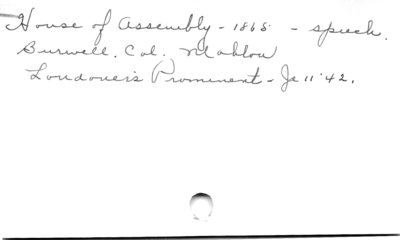 House of Assembly - 1865 - speech.
Burwell. Col. Mahlon
Londoners Prominent - Ja 11 '42.